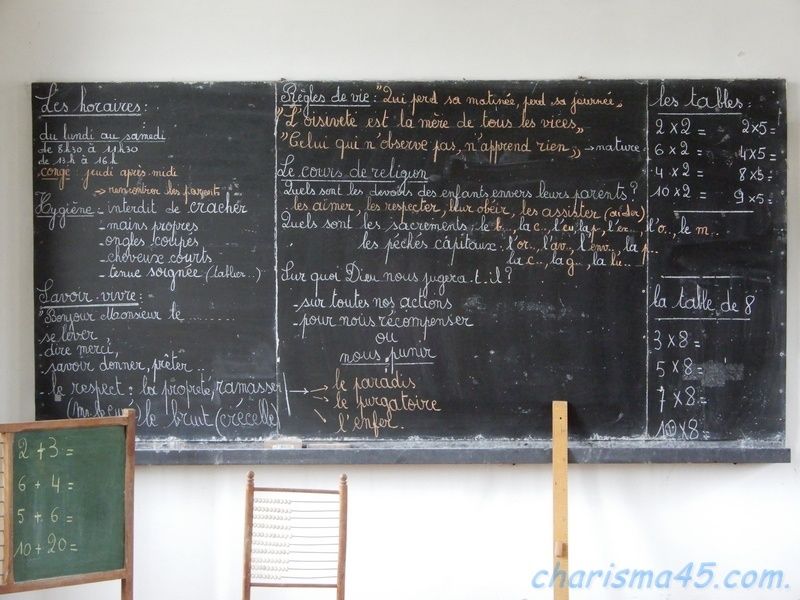 Les horaires :
du lundi au samedi
de 8h30 à 11h30
de 13h à 16h
congé : jeudi après-midi
→ rencontrer les parents
Hygiène : interdit de cracher
- mains propres
- ongles coupés
- cheveux courts
- tenue soignée (tablier...)
Savoir-vivre :
"Bonjour Monsieur le ..........
- se lever
- dire merci,
- savoir donner, prêter...
- le respect : la propreté, ramasser
le bruit (crécelle)
Règles de vie : "Qui perd sa matinée, perd sa journée"
"L'oisiveté est la mère de tous les vices"
"Celui qui n'observe pas, n'apprend rien" → nature
Le cours de religion
Quels sont les devoirs des enfants envers leurs parents ?
les aimer, les respecter, leur obéir, les assister (aider)
Quels sont les sacrements : le b..., la c..., l'eu, la p., l'ex..., l'o.., le m...
les péchés capitaux : l'or..., l'av..., l'env..., la p...
la c..., la g..., la lu...
Sur quoi Dieu nous jugera-t-il ?
- sur toutes nos actions
- pour nous récompenser
ou
nous punir
→ le paradis
→ le purgatoire
→ l'enfer.
les tables :
2 x 2 = 2 x 5 =
6 x 2 = 4 x 5 =
4 x 2 = 8 x 5 =
10 x 2 = 9 x 5 =
la table de 8
3 x 8 =
5 x 8 =
7 x 8 =
10 x 8 =
2 + 3 =
6 + 4 =
5 + 6 =
10 + 20 =
charisma45.com.